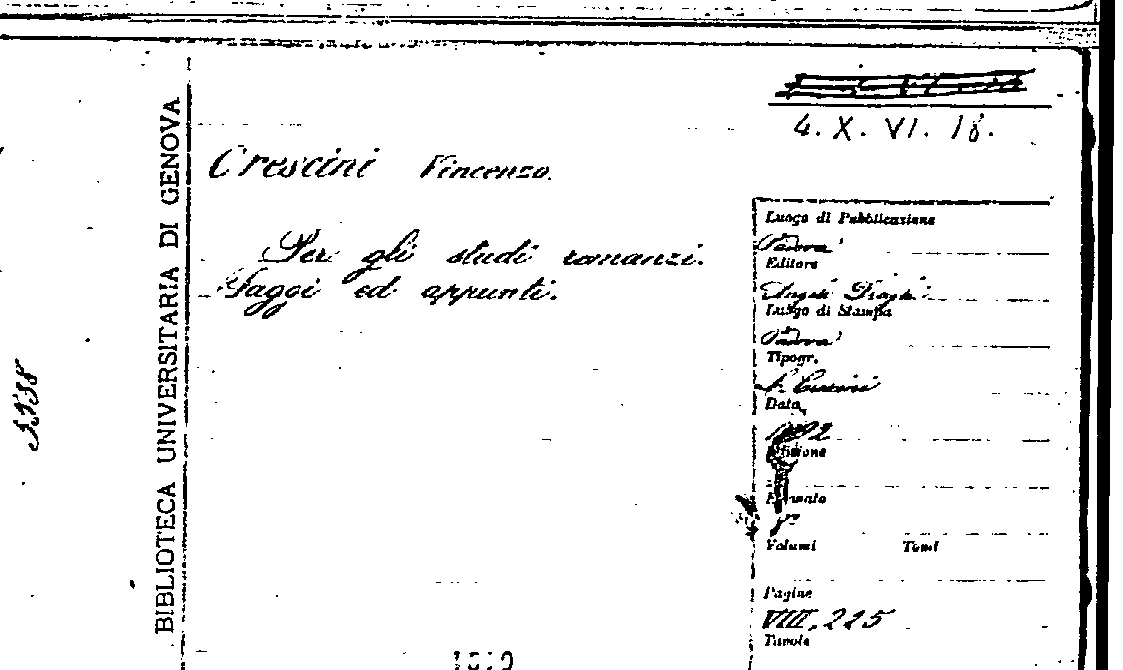 BIBLIOTECA UNIVERSITARIA DI GENOVA
4. X. VI. 18.
Crescini Vincenzo.
Per gli studi romanzi.
Saggi ed appunti.
Luogo di Pubblicazione
Padova
Editore
Angelo Draghi
Luogo di Stampa
Padova
Tipogr.
Data
Edizione
Formato
8°
Volumi Tomi
Pagine
VIII, 225
Tavole